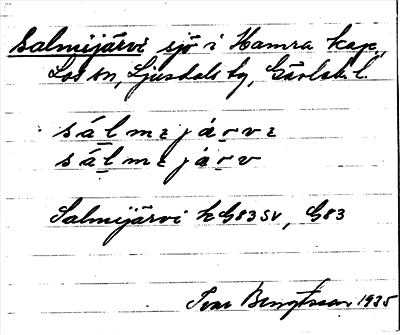 Salmijärvi sjö i Hamra kap.,
Los sn, Ljusdals tg, Gävleb. l.
sálmɛjárvɛ
sálmɛjárv
Salmijärvi k G83 SV, G83
Ivar Bengtsson 1935